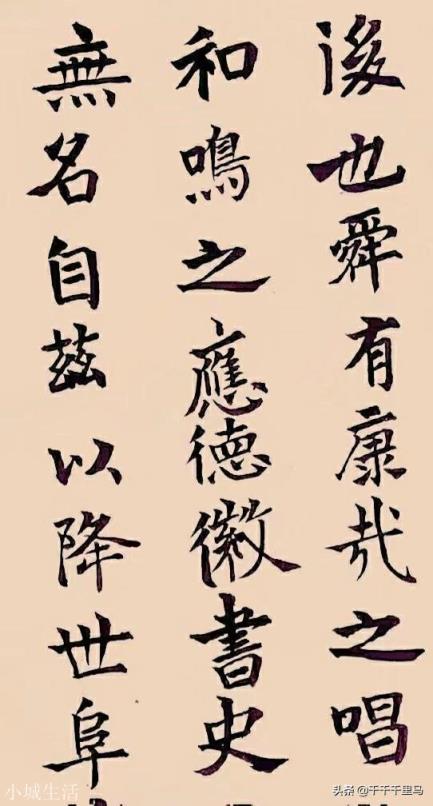 後也舜有康哉之唱
和鳴之應德徽書史
無名自茲以降世阜
小城生活
头条@千千千里马